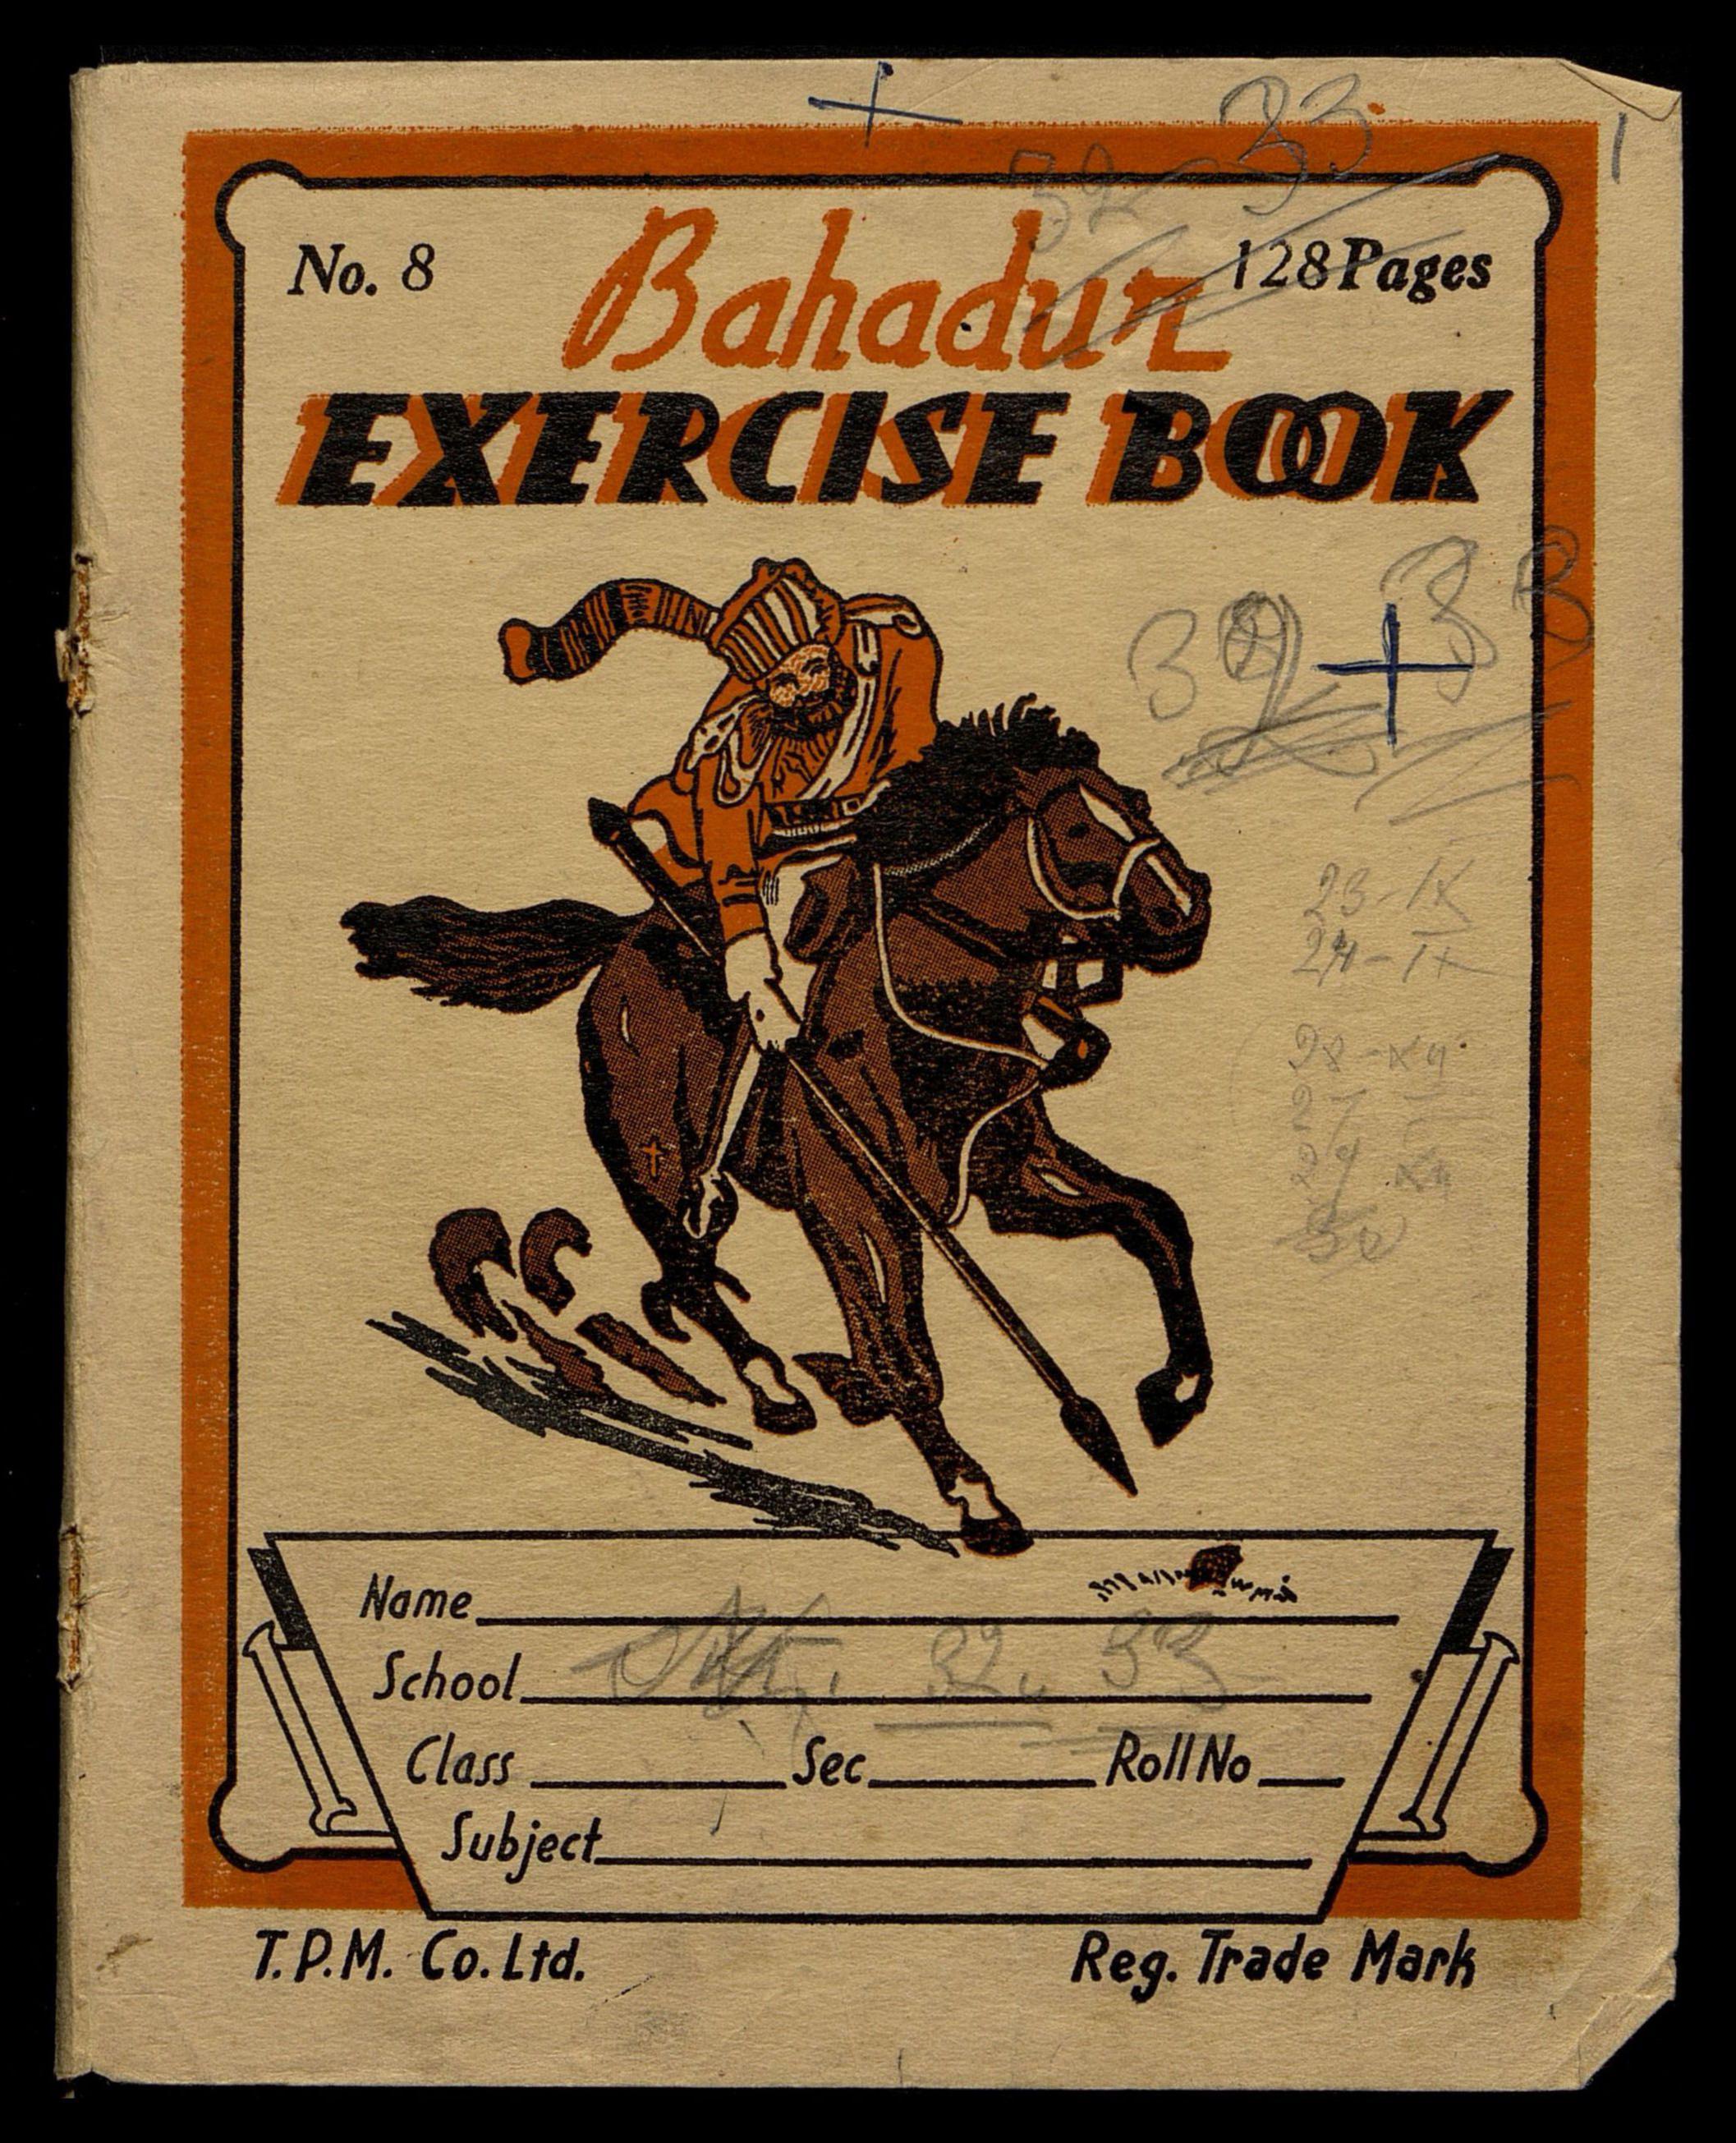 33
32
No. 8
Bahadur
128 Pages
EXERCISE BOOK
32 + 33
23-IX
24-IX
Name
School
32. 33
Class Sec Roll No
Subject
T.P.M. Co. Ltd. Reg. Trade Mark